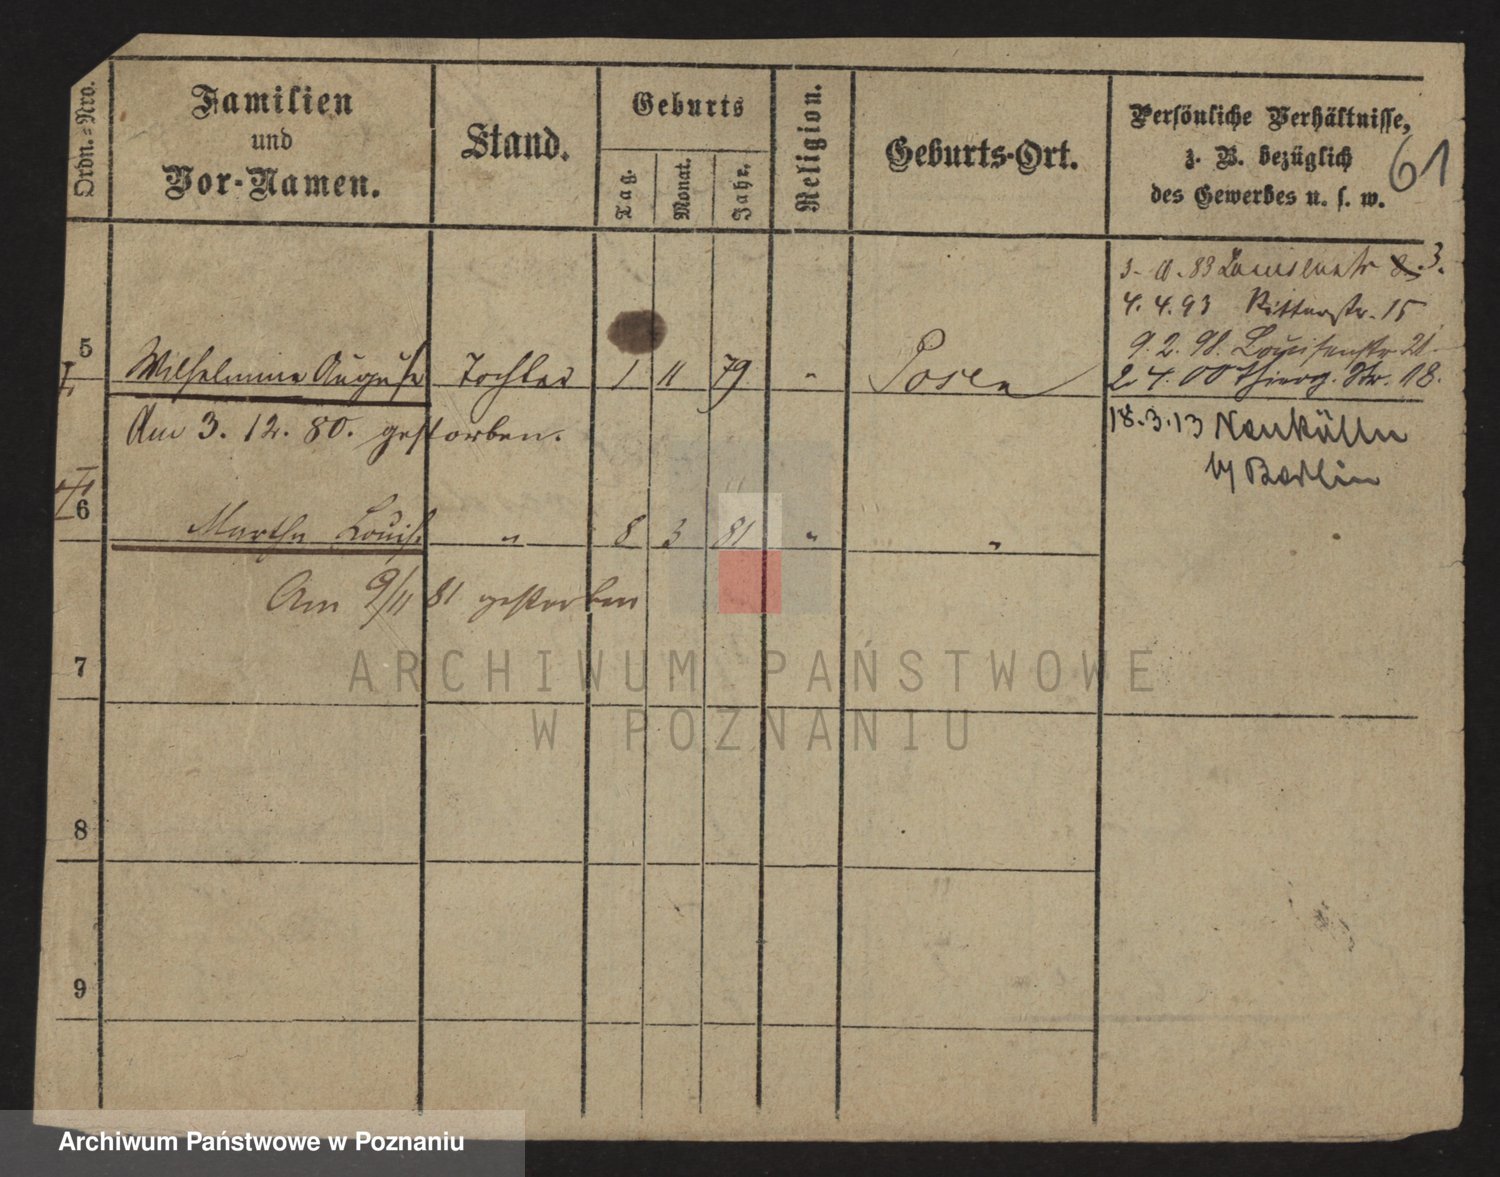 Ordn.=Nro.
Familien
und
Vor-Namen.
Stand.
Geburts
Tag.
Monat.
Jahr.
Religion.
Geburts-Ort.
Persönliche Verhältnisse,
z. B. bezüglich
des Gewerbes u. s. w.
61
3. 11. 83 Louisenstr 8. 3.
4. 4. 93 Ritterstr. 15
9. 2. 98. Louisenstr 21.
2 4. 00 Thierg. Str. 18.
18. 3. 13 Neukölln
b/ Berlin
5 Wilhelmine Auguste Tochter 1 11 79 " Posen
Am 3. 12. 80. gestorben.
6 Martha Louise " 8 3 81 " "
Am 9/11 81 gestorben
7
8
9
ARCHIWUM PAŃSTWOWE
W POZNANIU
Archiwum Państwowe w Poznaniu